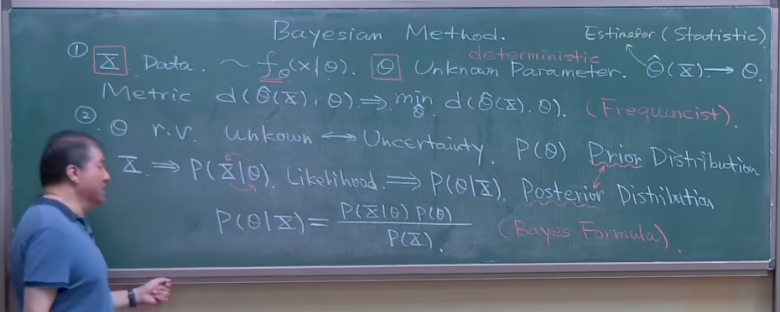 Bayesian Method.
Estimator (Statistic)
① X Data. ~ f_θ(x|θ). θ Unknown Parameter. θ̂(X) → θ.
deterministic
Metric d(θ̂(X), θ) ⇒ min_θ̂ d(θ̂(X), θ). (Frequencist).
② θ r.v. unkown ↔ Uncertainty. P(θ) Prior Distribution
X ⇒ P(X|θ). Likelihood. ⇒ P(θ|X). Posterior Distribution
P(θ|X) = P(X|θ) P(θ) / P(X). (Bayes Formula).